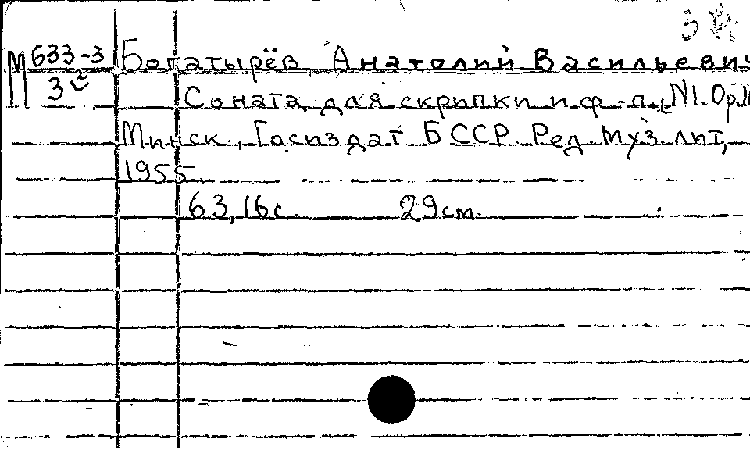 М 633-3 Богатырёв Анатолий Васильевич
3
Соната для скрипки и ф-п., N1. Ор.
Минск, Госиздат БССР. Ред. муз. лит.,
1955
63, 16 с. 29 см.